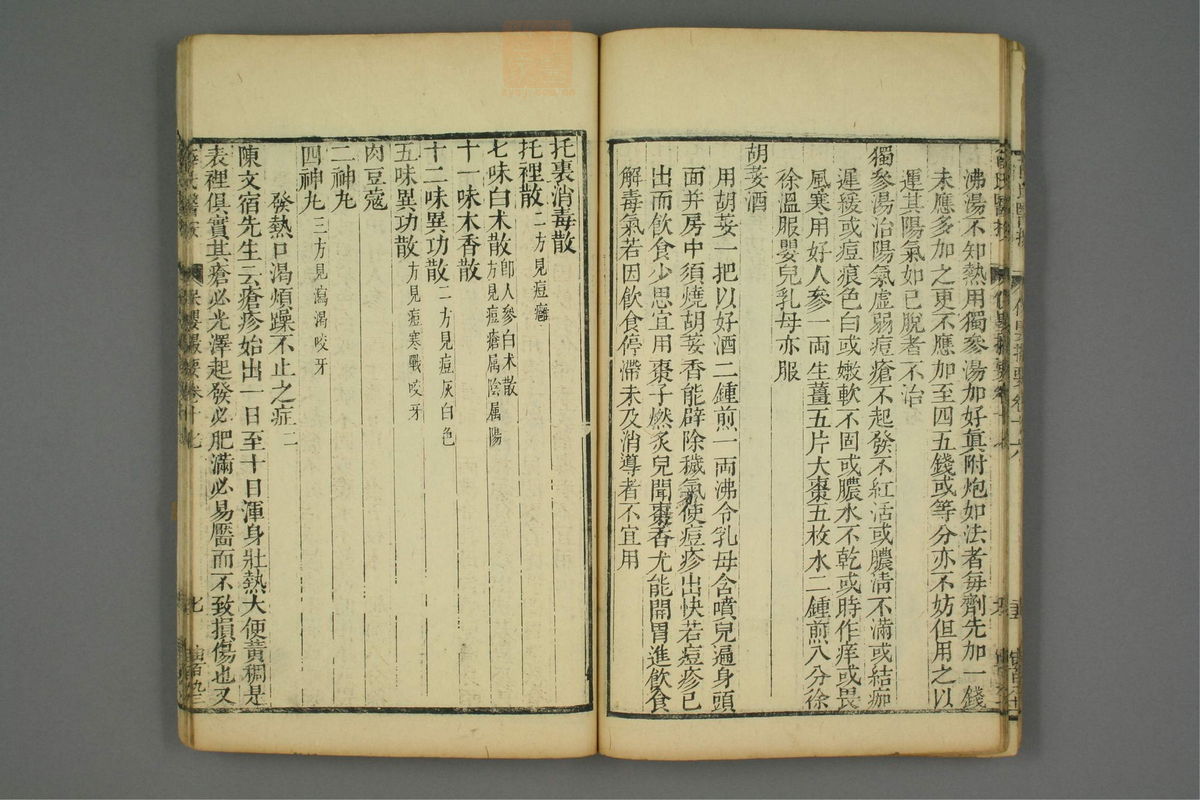 沸湯不知熱用獨參湯加好真附炮如法者每劑先加一錢
未應多加之更不應加至四五錢或等分亦不妨但用之以
運其陽氣如已脫者不治
獨參湯治陽氣虛弱痘瘡不起發不紅活或膿清不滿或結痂
遲緩或痘痕色白或嫩軟不固或膿水不乾或時作痒或畏
風寒用好人參一兩生薑五片大棗五枚水二鍾煎八分徐
徐溫服嬰兒乳母亦服
胡荽酒
用胡荽一把以好酒二鍾煎一兩沸令乳母含噴兒遍身頭
面并房中須燒胡荽香能辟除穢氣使痘疹出快若痘疹已
出而飲食少思宜用棗子燃炙兒聞棗香尤能開胃進飲食
解毒氣若因飲食停滯未及消導者不宜用
托裏消毒散
托裡散二方見痘癰
七味白朮散即人參白朮散方見痘瘡屬陰屬陽
十一味木香散
十二味異功散二方見痘灰白色
五味異功散方見痘寒戰咬牙
肉豆蔻
二神丸
四神丸三方見瀉渴咬牙
發熱口渴煩躁不止之症二
陳文宿先生云瘡疹始出一日至十日渾身壯熱大便黃稠是
表裡俱實其瘡必光澤起發必肥滿必易靨而不致損傷也又
薛氏醫按 保嬰撮要卷十七